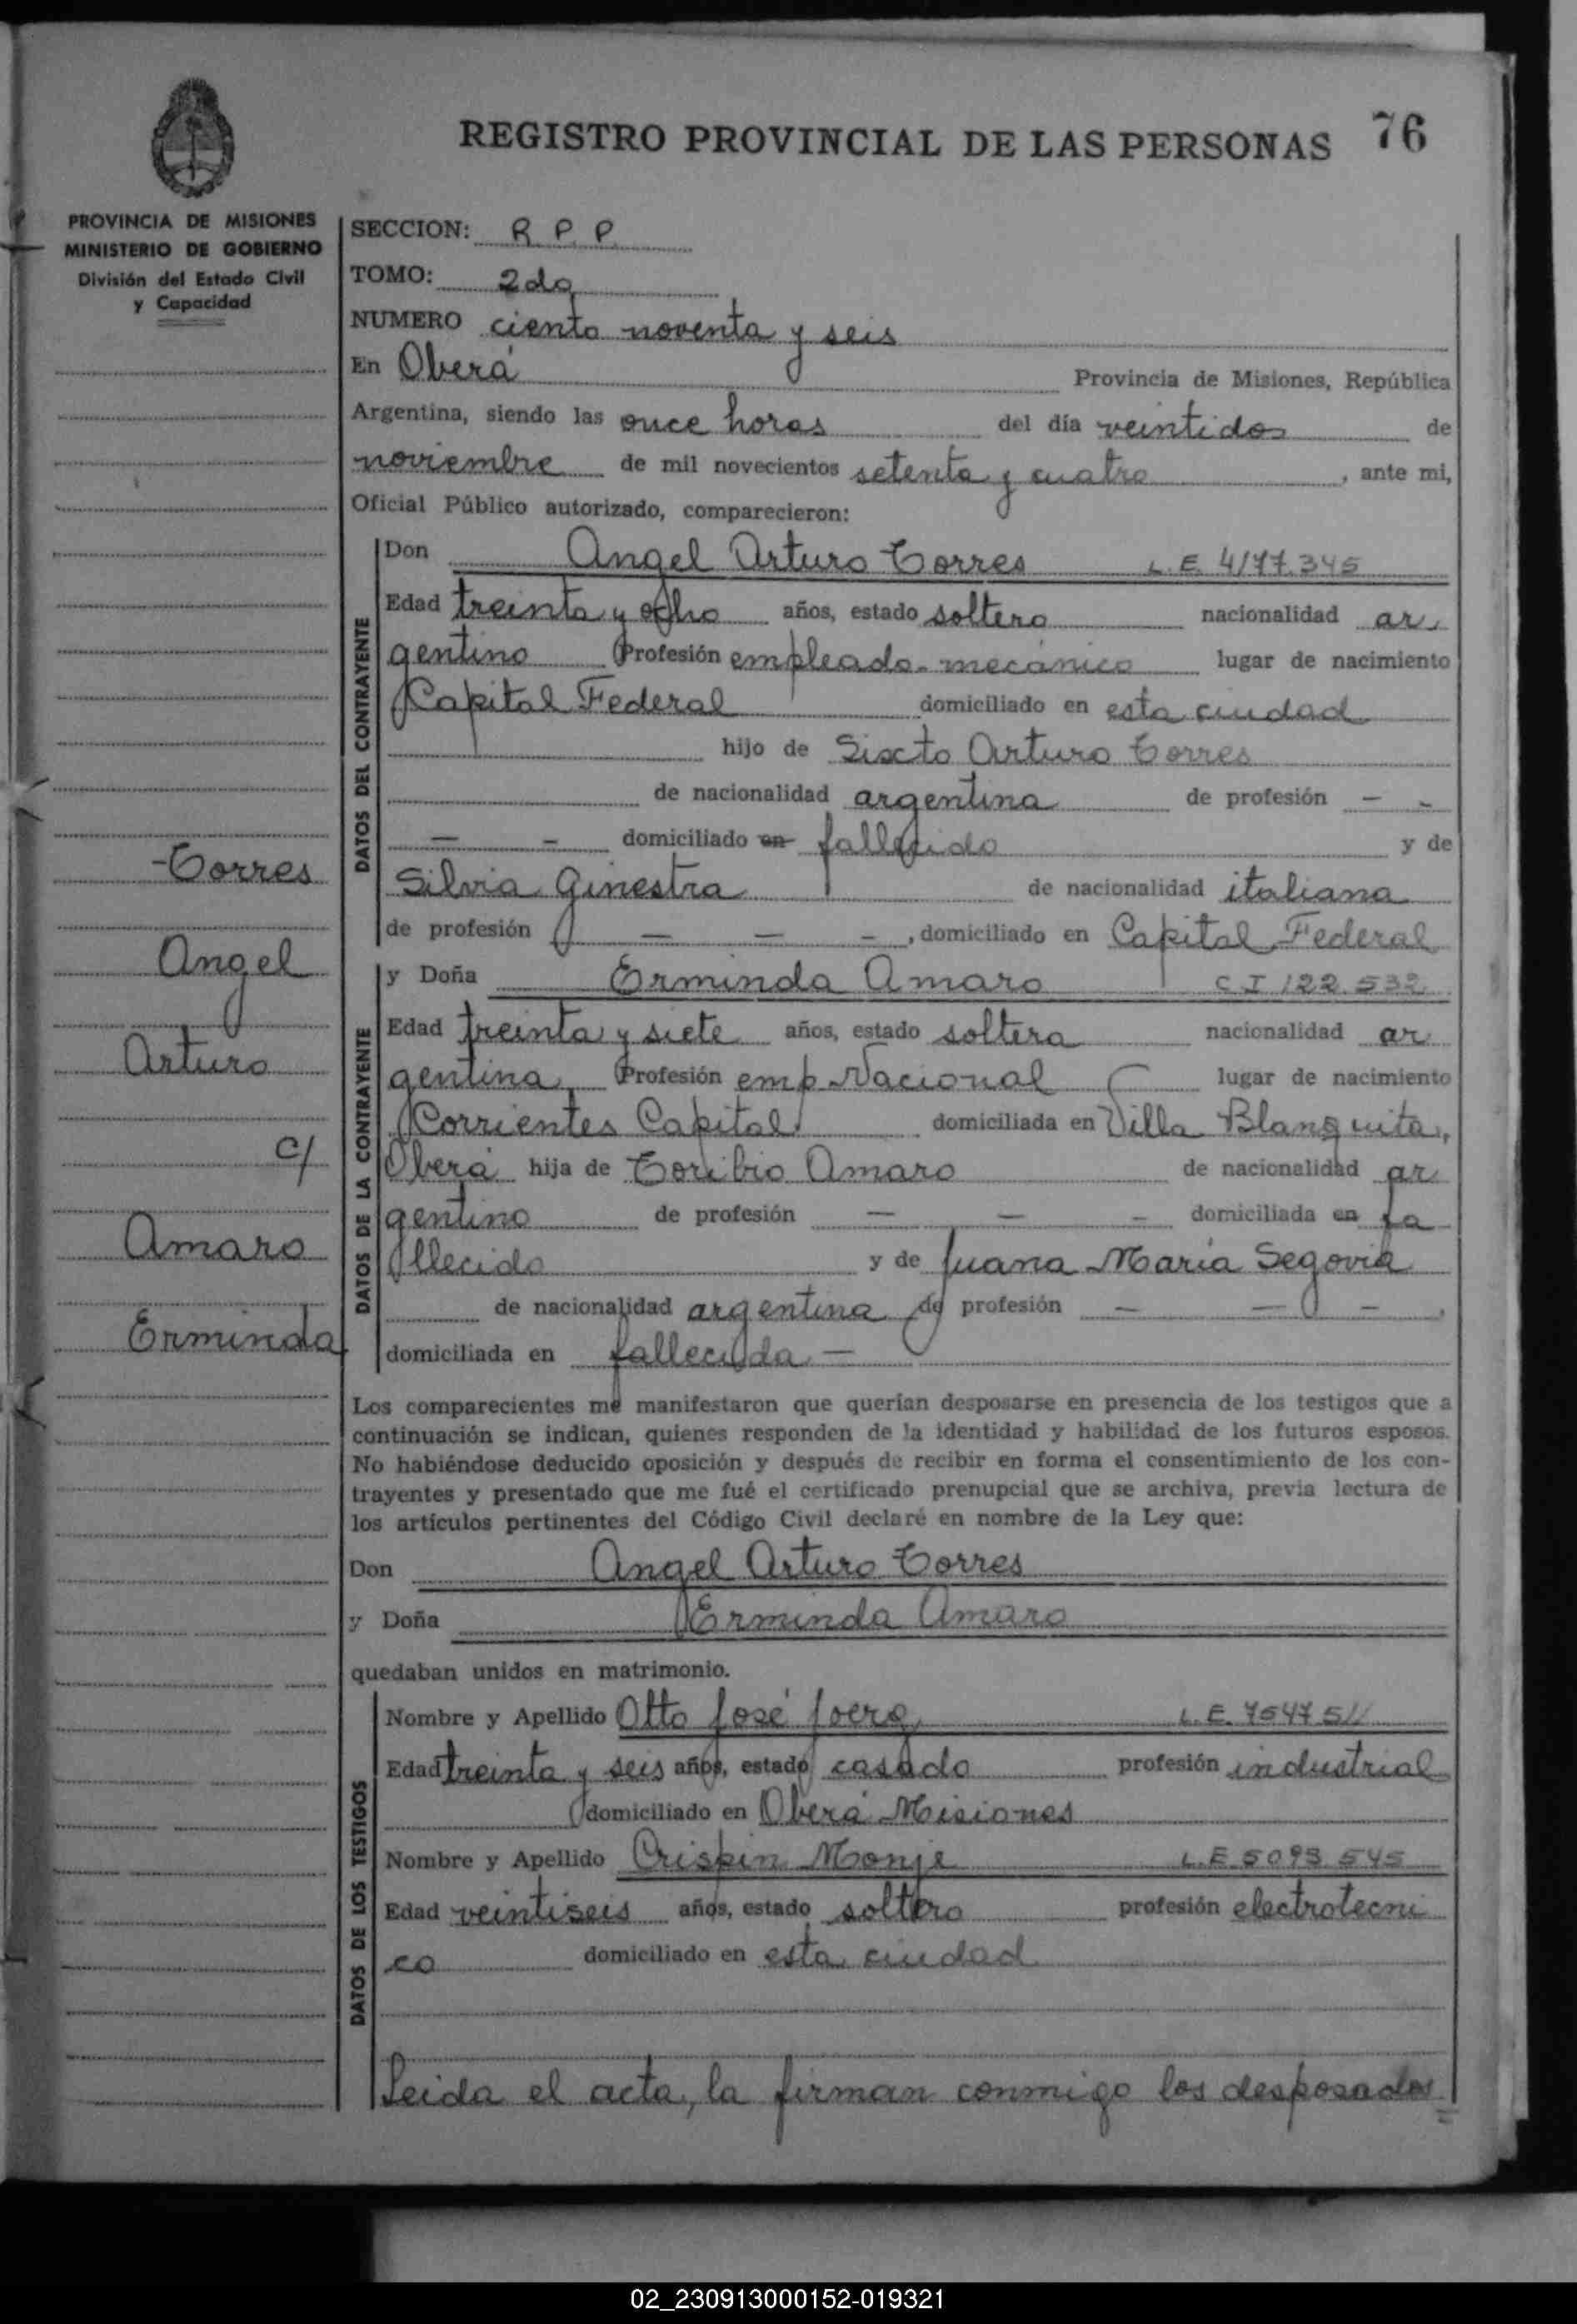 REGISTRO PROVINCIAL DE LAS PERSONAS 76
PROVINCIA DE MISIONES
MINISTERIO DE GOBIERNO
División del Estado Civil
y Capacidad
SECCION: R. P. P.
TOMO: 2do
NUMERO ciento noventa y seis
En Oberá Provincia de Misiones, República
Argentina, siendo las once horas del día veintidos de
noviembre de mil novecientos setenta y cuatro, ante mi,
Oficial Público autorizado, comparecieron:
DATOS DEL CONTRAYENTE
Don Angel Arturo Torres L. E. 4177.345
Edad treinta y ocho años, estado soltero nacionalidad ar
gentino Profesión empleado mecánico lugar de nacimiento
Capital Federal domiciliado en esta ciudad
hijo de Sixto Arturo Torres
de nacionalidad argentina de profesión — -
— - domiciliado en fallecido y de
Silvia Ginestra de nacionalidad italiana
de profesión — — -, domiciliado en Capital Federal
DATOS DE LA CONTRAYENTE
y Doña Erminda Amaro C I 122.532
Edad treinta y siete años, estado soltera nacionalidad ar
gentina Profesión emp Nacional lugar de nacimiento
Corrientes Capital domiciliada en Villa Blanquita,
Oberá hija de Toribio Amaro de nacionalidad ar
gentino de profesión — — - domiciliada en fa
llecido y de Juana María Segovia
de nacionalidad argentina de profesión — — -,
domiciliada en fallecida —
Los comparecientes me manifestaron que querían desposarse en presencia de los testigos que a
continuación se indican, quienes responden de la identidad y habilidad de los futuros esposos.
No habiéndose deducido oposición y después de recibir en forma el consentimiento de los con-
trayentes y presentado que me fué el certificado prenupcial que se archiva, previa lectura de
los artículos pertinentes del Código Civil declaré en nombre de la Ley que:
Don Angel Arturo Torres
y Doña Erminda Amaro
quedaban unidos en matrimonio.
DATOS DE LOS TESTIGOS
Nombre y Apellido Otto José Joerg L. E. 7547511
Edad treinta y seis años, estado casado profesión industrial
domiciliado en Oberá Misiones
Nombre y Apellido Crispin Monje L.E. 5093.545
Edad veintiseis años, estado soltero profesión electrotecni
co domiciliado en esta ciudad
Leida el acta, la firman conmigo los desposados
-Torres
Angel
Arturo
c/
Amaro
Erminda
02_230913000152-019321